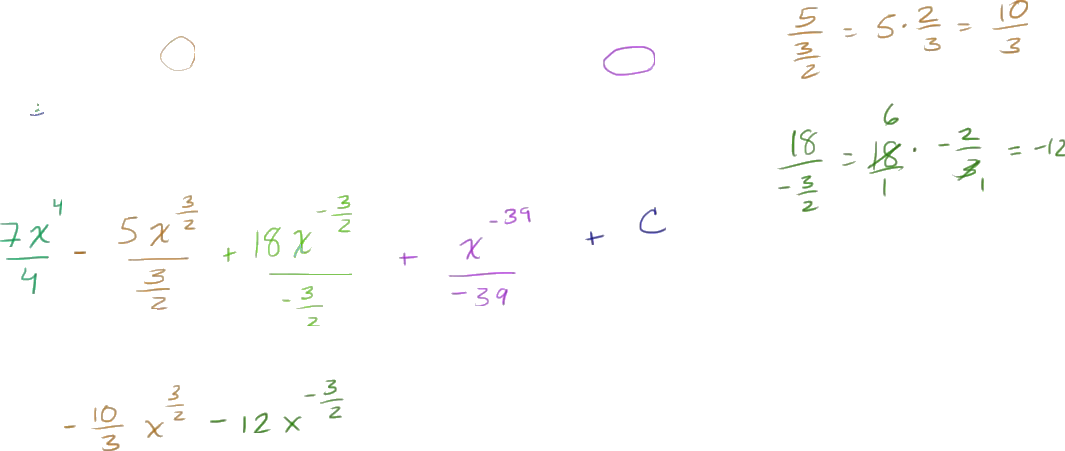 5/(3/2) = 5 · 2/3 = 10/3
18/(-3/2) = 6 18/1 · -2/3 1 = -12
7x^4/4 - 5x^(3/2)/(3/2) + 18x^(-3/2)/(-3/2) + x^(-39)/(-39) + C
- 10/3 x^(3/2) - 12x^(-3/2)